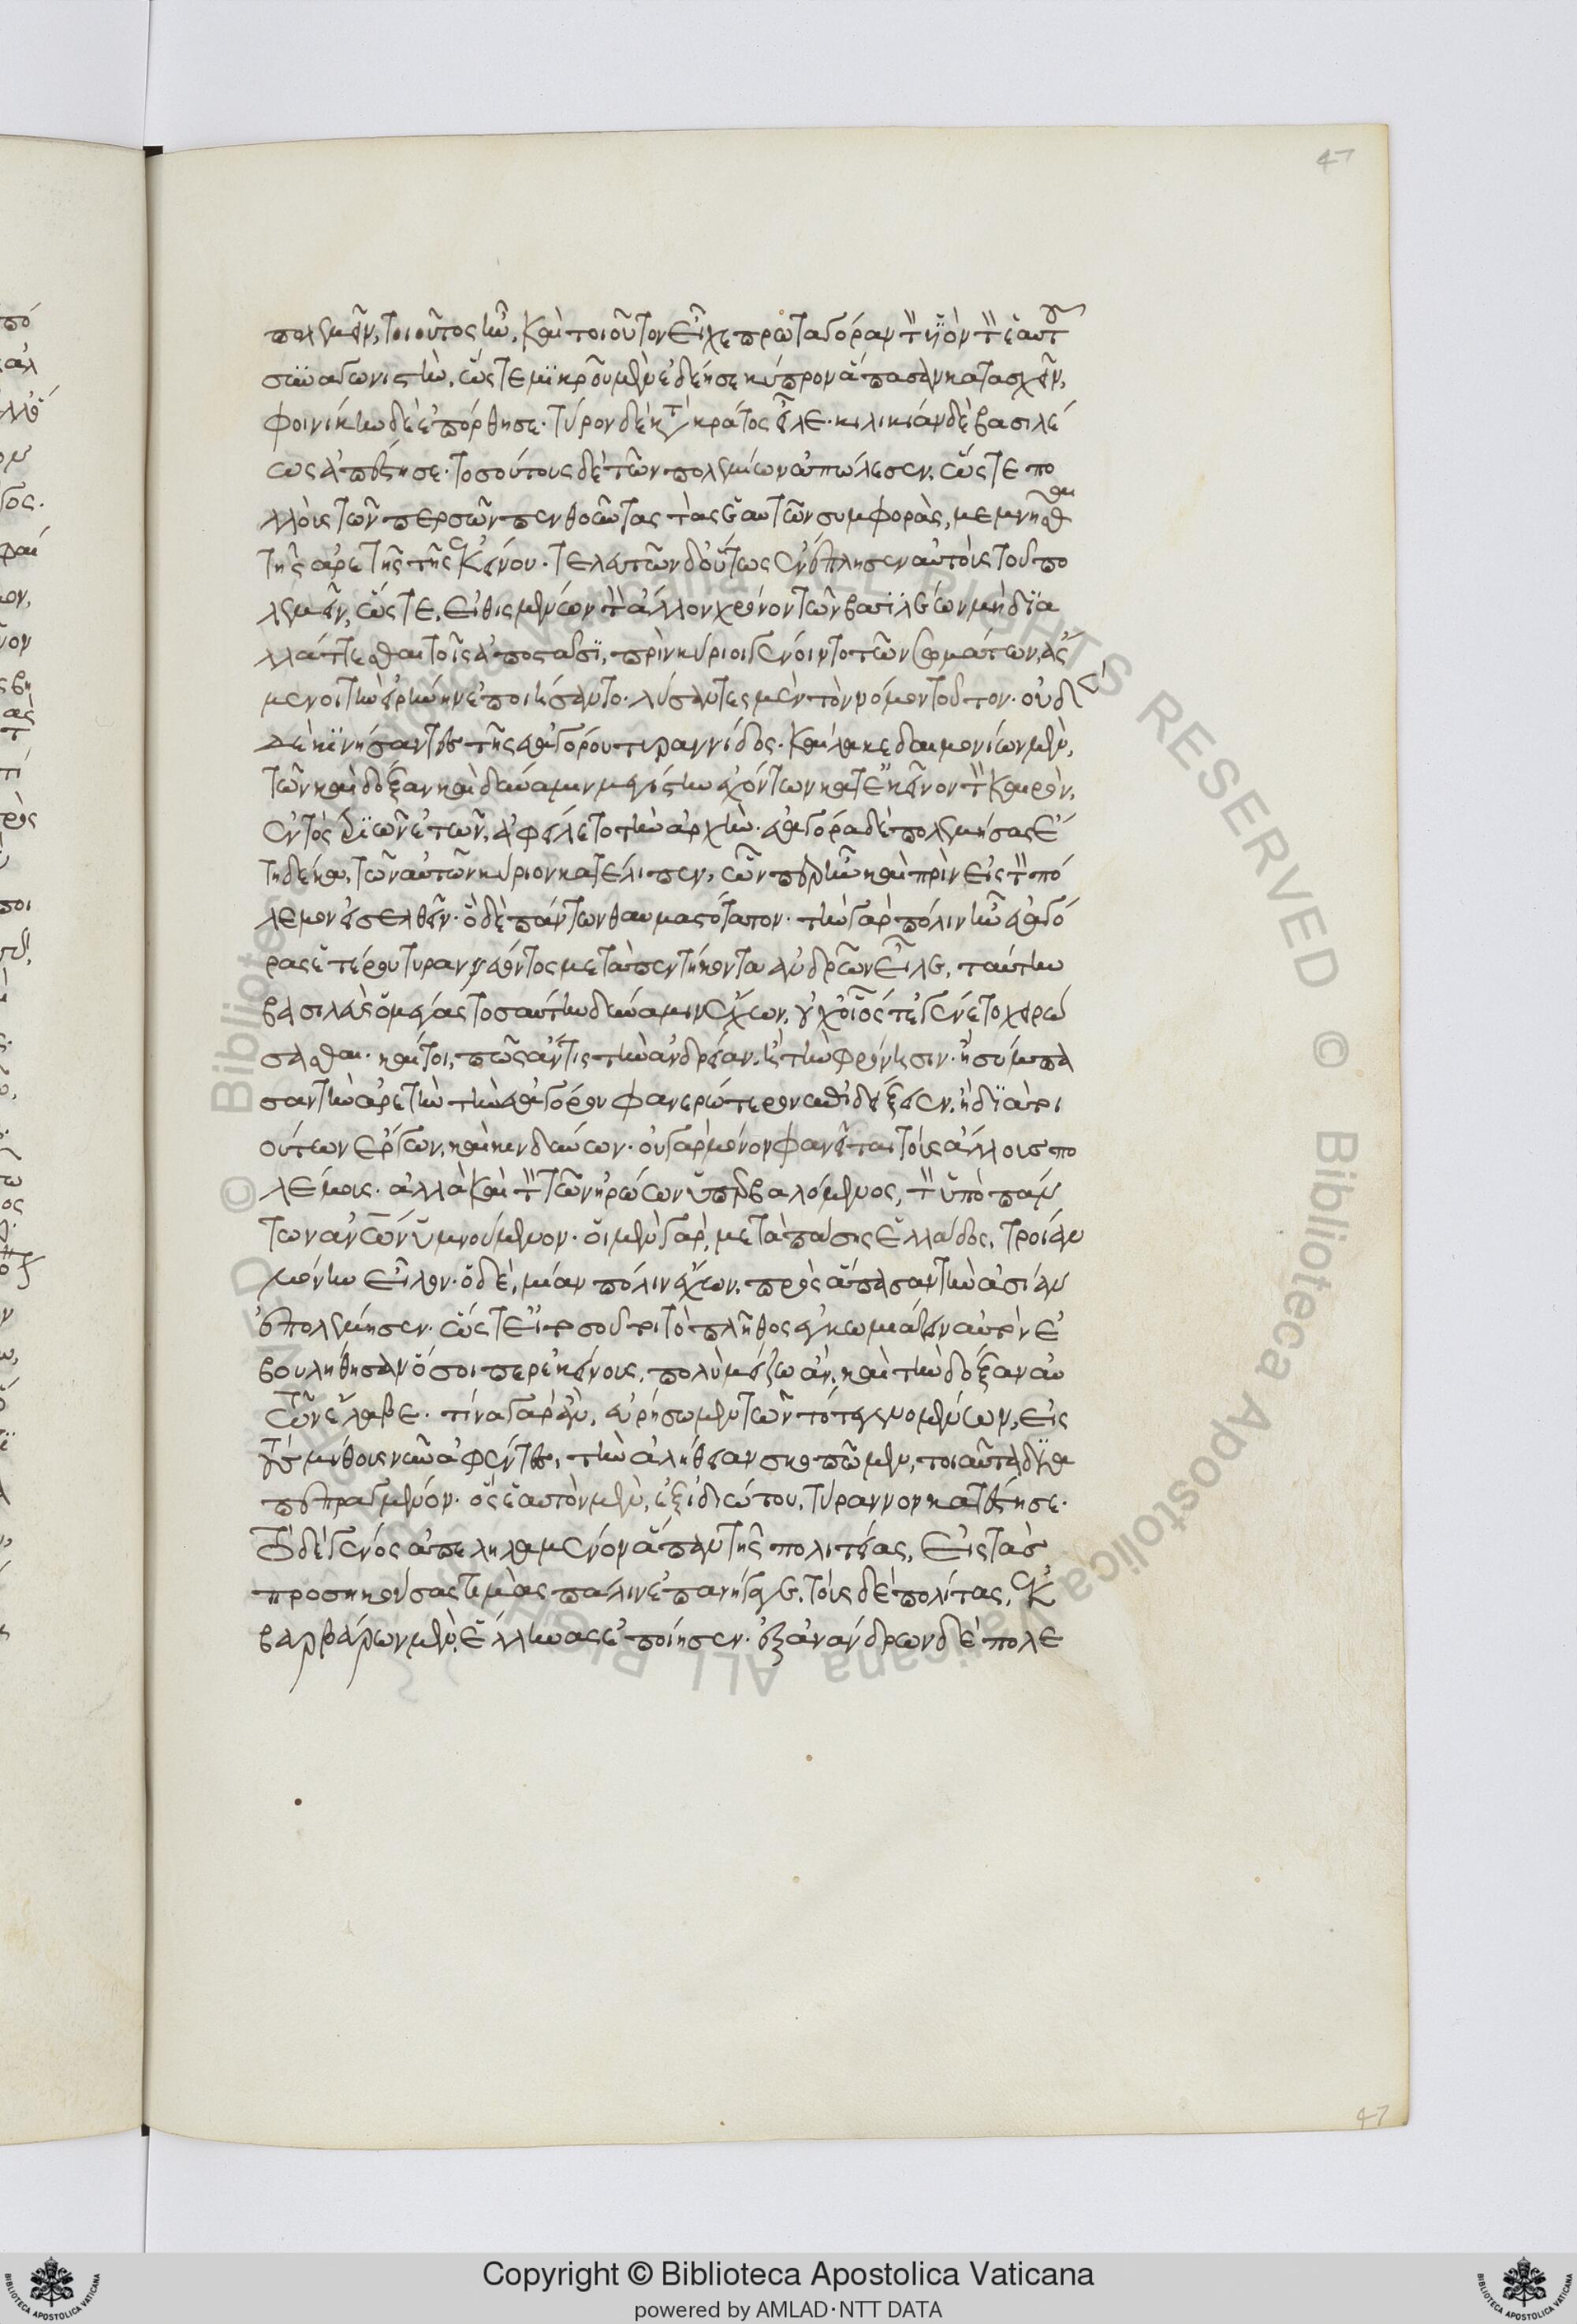 47
πολεμεῖν, τοιοῦτος ἦν, καὶ τοιοῦτον εἶχε πρωταγόραν τὸν ὑὸν τὸν ἑαυτοῦ
συναγωνιστὴν, ὥστε μικροῦ μὲν ἐδέησε κύπρον ἅπασαν κατασχεῖν,
φοινίκην δὲ ἐπόρθησε· τύρον δὲ κατὰ κράτος εἷλε· κιλικίαν δὲ βασιλέ
ως ἀπέστησε· τοσούτους δὲ τῶν πολεμίων ἀπώλεσεν, ὥστε πο
λλοὺς τῶν περσῶν πενθοῦντας τὰς ἑαυτῶν συμφορὰς, μεμνῆσθαι
τῆς ἀρετῆς τῆς ἐκείνου· τελευτῶν δ' οὕτως ἐνέπλησεν αὐτοὺς τοῦ πο
λεμεῖν, ὥστε, εἰθισμένων τὸν ἄλλον χρόνον τῶν βασιλέων μὴ δια
λλάττεσθαι τοῖς ἀποστᾶσι, πρὶν κύριοι γένοιντο τῶν σωμάτων, ἄσ
μενοι τὴν εἰρήνην ἐποιήσαντο· λύσαντες μὲν τὸν νόμον τοῦτον· οὐδὲν
δὲ κινήσαντες τῆς εὐαγόρου τυραννίδος· καὶ λακεδαιμονίων μὲν,
τῶν καὶ δόξαν καὶ δύναμιν μεγίστην ἐχόντων κατ' ἐκεῖνον τὸν καιρὸν,
ἐντὸς τριῶν ἐτῶν, ἀφείλετο τὴν ἀρχήν· εὐαγόρα δὲ πολεμήσας ἔ
τη δέκα, τῶν αὐτῶν κύριον κατέλιπεν, ὧν περ ἦν καὶ πρὶν εἰς τὸν πό
λεμον εἰσελθεῖν· ὃ δὲ πάντων θαυμαστότατον· τὴν γὰρ πόλιν ἣν εὐαγό
ρας ἑτέρου τυραννοῦντος μετὰ πεντήκοντα ἀνδρῶν εἷλε, ταύτην
βασιλεὺς ὁ μέγας τοσαύτην δύναμιν ἔχων, οὐχ οἷός τε ἐγένετο χειρώ
σασθαι· καίτοι, πῶς ἄν τις τὴν ἀνδρείαν. ἢ τὴν φρόνησιν· ἢ σύμπα
σαν τὴν ἀρετὴν τὴν εὐαγόρου φανερώτερον ἐπιδείξειεν, ἢ διὰ τοι
ούτων ἔργων, καὶ κινδύνων· οὐ γὰρ μόνον φανεῖται τοὺς ἄλλους πο
λέμους· ἀλλὰ καὶ τὸν τῶν ἡρώων ὑπερβαλόμενος, τὸν ὑπὸ πάν
των ἀνθρώπων ὑμνούμενον· οἱ μὲν γὰρ, μετὰ πάσης ἑλλάδος, τροίαν
μόνην εἷλον· ὁ δὲ, μίαν πόλιν ἔχων, πρὸς ἅπασαν τὴν ἀσίαν
ἐπολέμησεν· ὥστε εἰ τοσοῦτοι τὸ πλῆθος ἐγκωμιάζειν αὐτὸν ἐ
βουλήθησαν ὅσοι περ ἐκείνους, πολὺ μείζω ἂν, καὶ τὴν δόξαν αὐ
τῶν ἔλαβε· τίνα γὰρ ἂν, εὑρήσωμεν τῶν τότε γενομένων, εἰ
τοὺς μύθους νῦν ἀφέντες, τὴν ἀλήθειαν σκοποῖμεν, τοιαῦτα δια
πεπραγμένον· ὃς ἑαυτὸν μὲν, ἐξ ἰδιώτου, τύραννον κατέστησε·
τὸ δὲ γένος ἀπεληλαμένον ἅπαν τῆς πολιτείας, εἰς τὰς
προσηκούσας τιμὰς πάλιν ἐπανήγαγε, τοὺς δὲ πολίτας, ἐκ
βαρβάρων μὲν, ἕλληνας ἐποίησεν· ἐξ ἀνάνδρων δὲ πολε
47
Copyright © Biblioteca Apostolica Vaticana
powered by AMLAD·NTT DATA